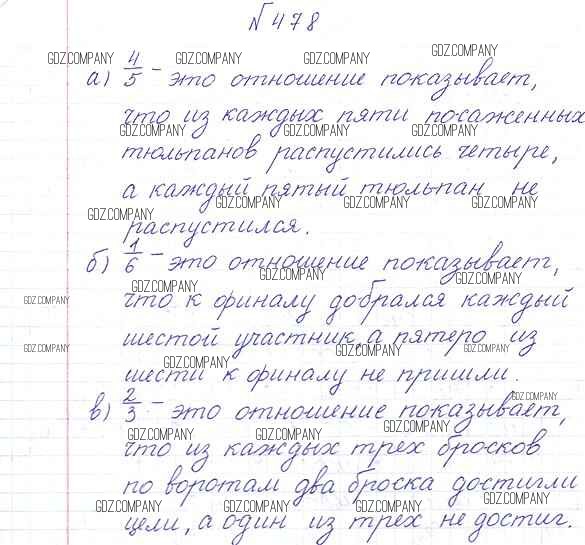 № 478
GDZ.COMPANY GDZ.COMPANY GDZ.COMPANY GDZ.COMPANY
а) 4/5 - это отношение показывает,
что из каждых пяти посаженных
GDZ.COMPANY GDZ.COMPANY GDZ.COMPANY
тюльпанов распустились четыре,
а каждый пятый тюльпан не
GDZ.COMPANY GDZ.COMPANY GDZ.COMPANY GDZ.COMPANY
распустился.
б) 1/6 - это отношение показывает,
GDZ.COMPANY GDZ.COMPANY GDZ.COMPANY
что к финалу добрался каждый
GDZ.COMPANY
шестой участник, а пятеро из
GDZ.COMPANY GDZ.COMPANY GDZ.COMPANY GDZ.COMPANY
шести к финалу не пришли.
в) 2/3 - это отношение показывает,
GDZ.COMPANY
GDZ.COMPANY GDZ.COMPANY GDZ.COMPANY
что из каждых трех бросков
по воротам два броска достигли
GDZ.COMPANY GDZ.COMPANY GDZ.COMPANY GDZ.COMPANY
цели, а один из трех не достиг.